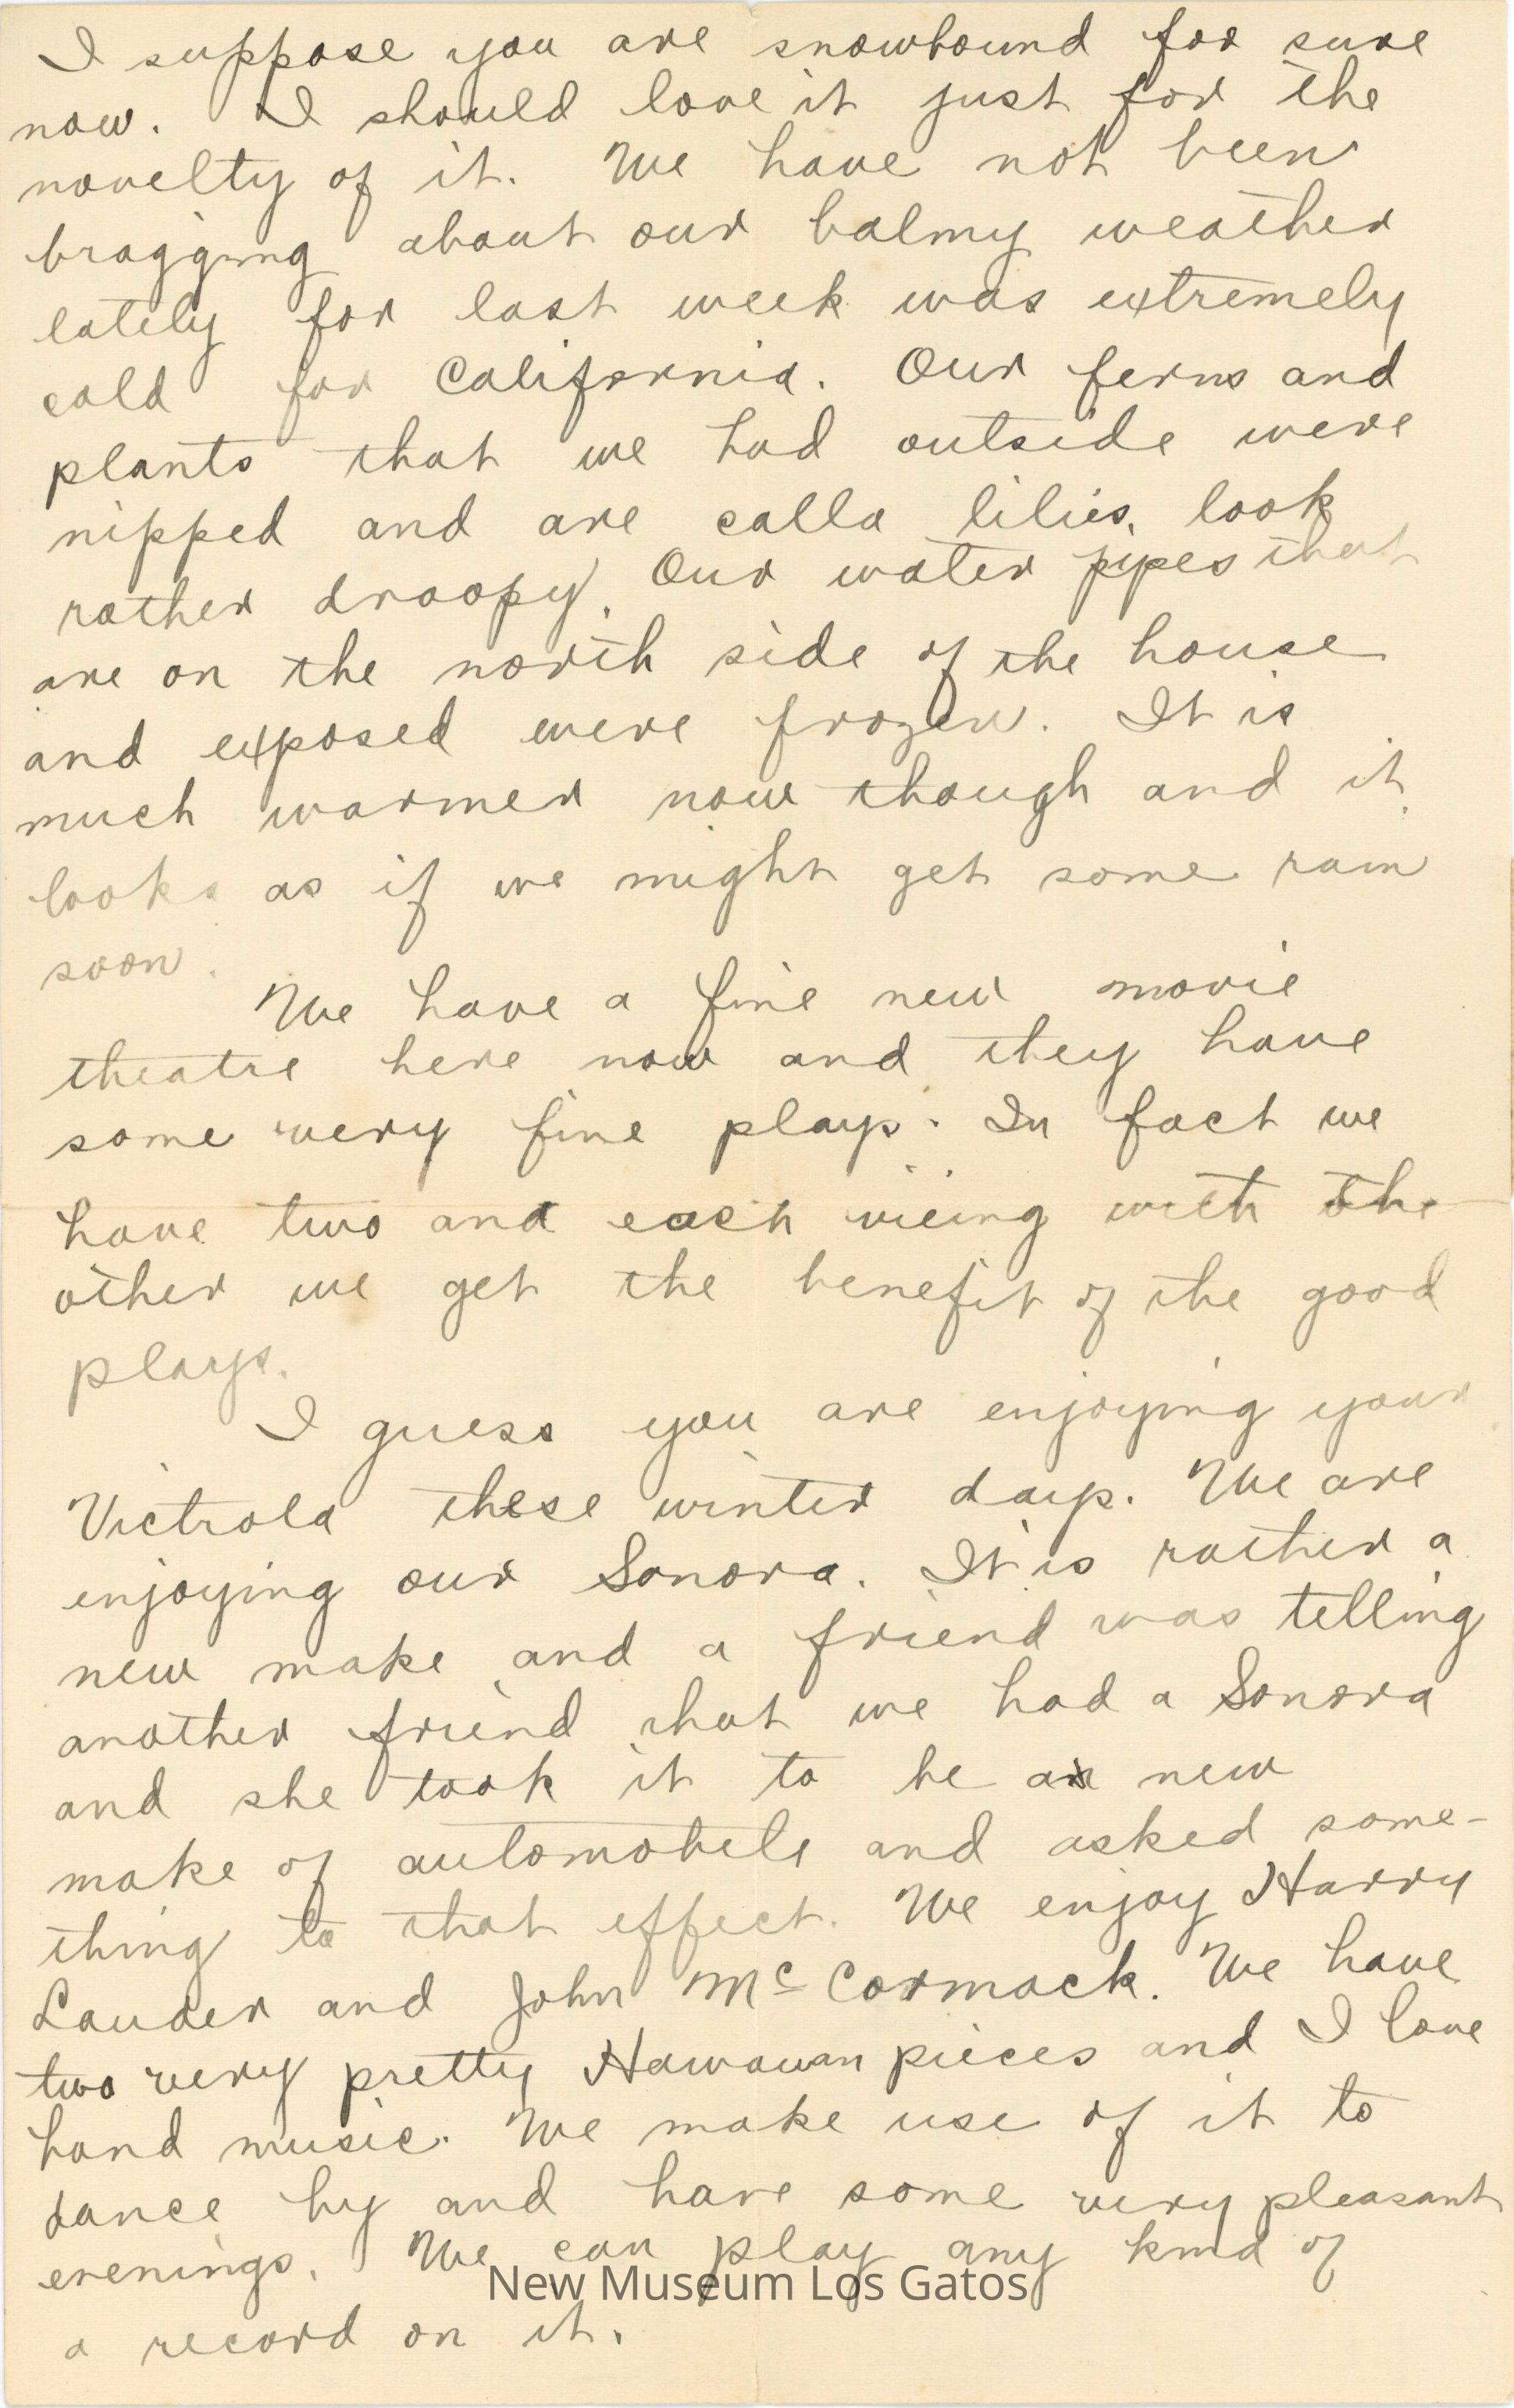 I suppose you are snowbound for sure
now. I should love it just for the
novelty of it. We have not been
bragging about our balmy weather
lately for last week was extremely
cold for California. Our ferns and
plants that we had outside were
nipped and are calla lilies, look
rather droopy. Our water pipes that
are on the north side of the house
and exposed were frozen. It is
much warmer now though and it
looks as if we might get some rain
soon.
We have a fine new movie
theatre here now and they have
some very fine plays. In fact we
have two and each vieing with the
other we get the benefit of the good
plays.
I guess you are enjoying your
Victrola these winter days. We are
enjoying our Sonora. It is rather a
new make and a friend was telling
another friend that we had a Sonora
and she took it to be a new
make of automobile and asked some-
thing to that effect. We enjoy Harry
Lauder and John McCormack. We have
two very pretty Hawaiian pieces and I love
band music. We make use of it to
dance by and have some very pleasant
evenings. We can play any kind of
a record on it.
New Museum Los Gatos